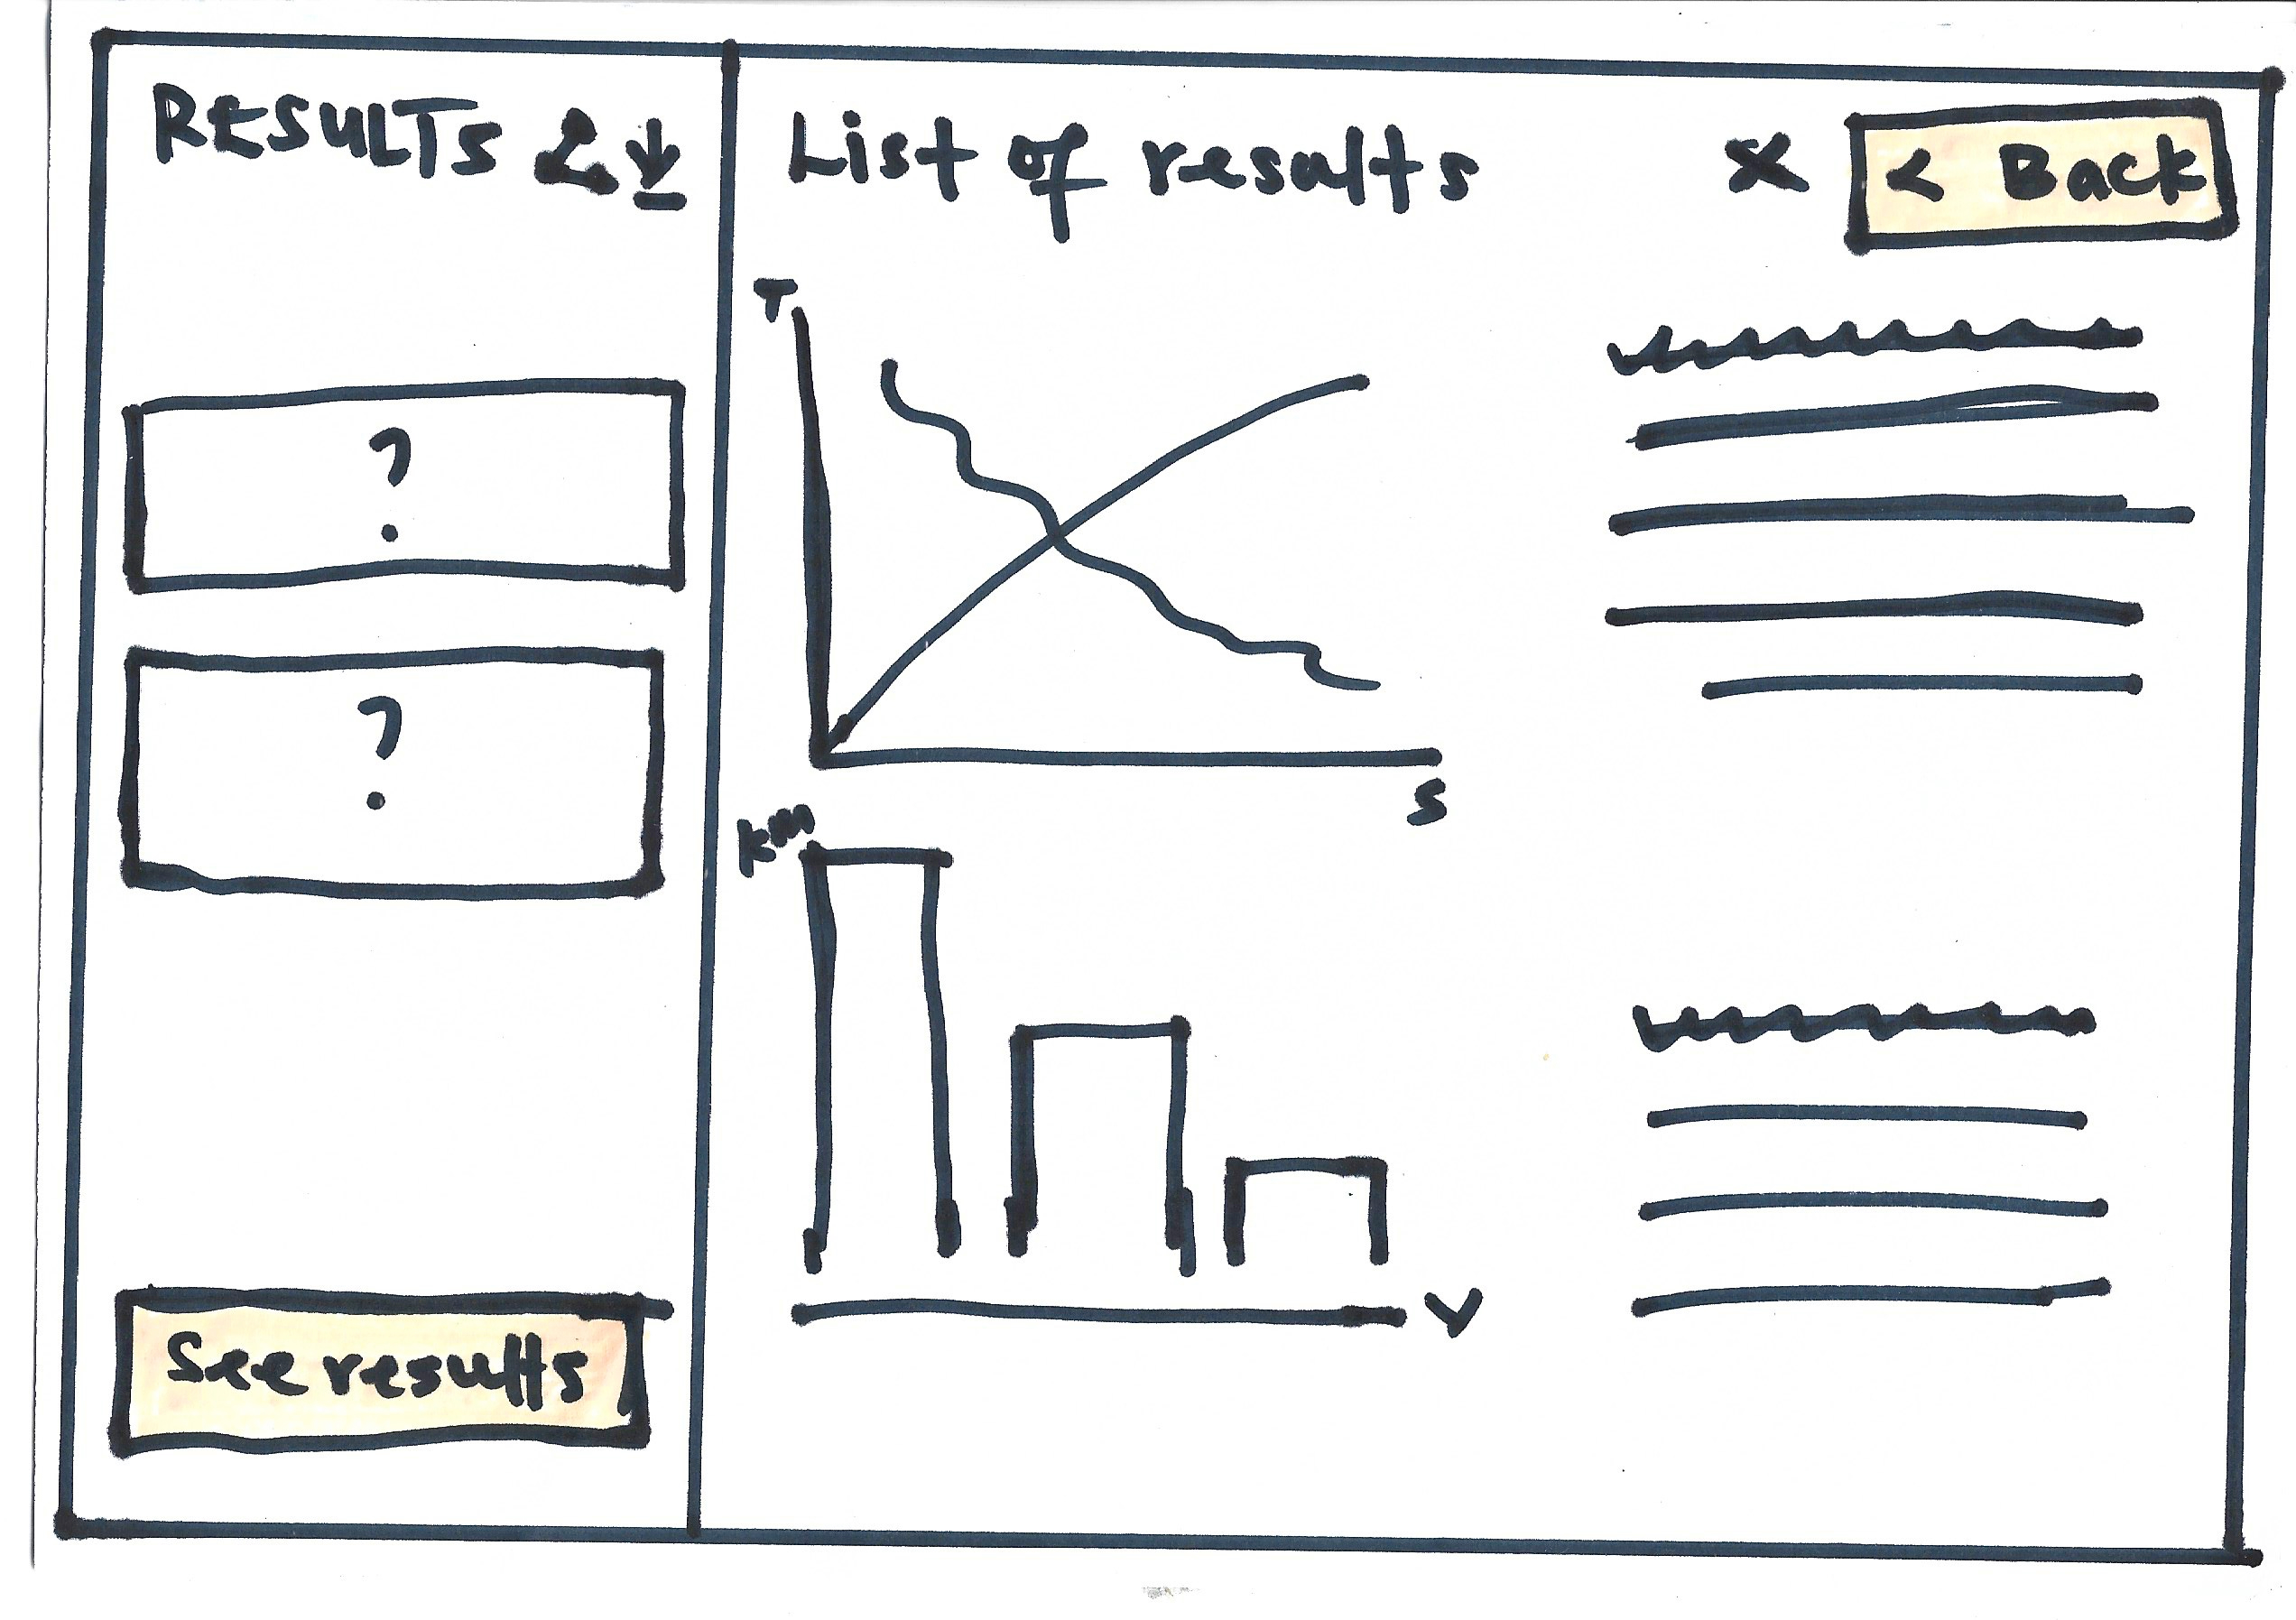 RESULTS
?
?
See results
List of results
x < Back
T
S
km
V